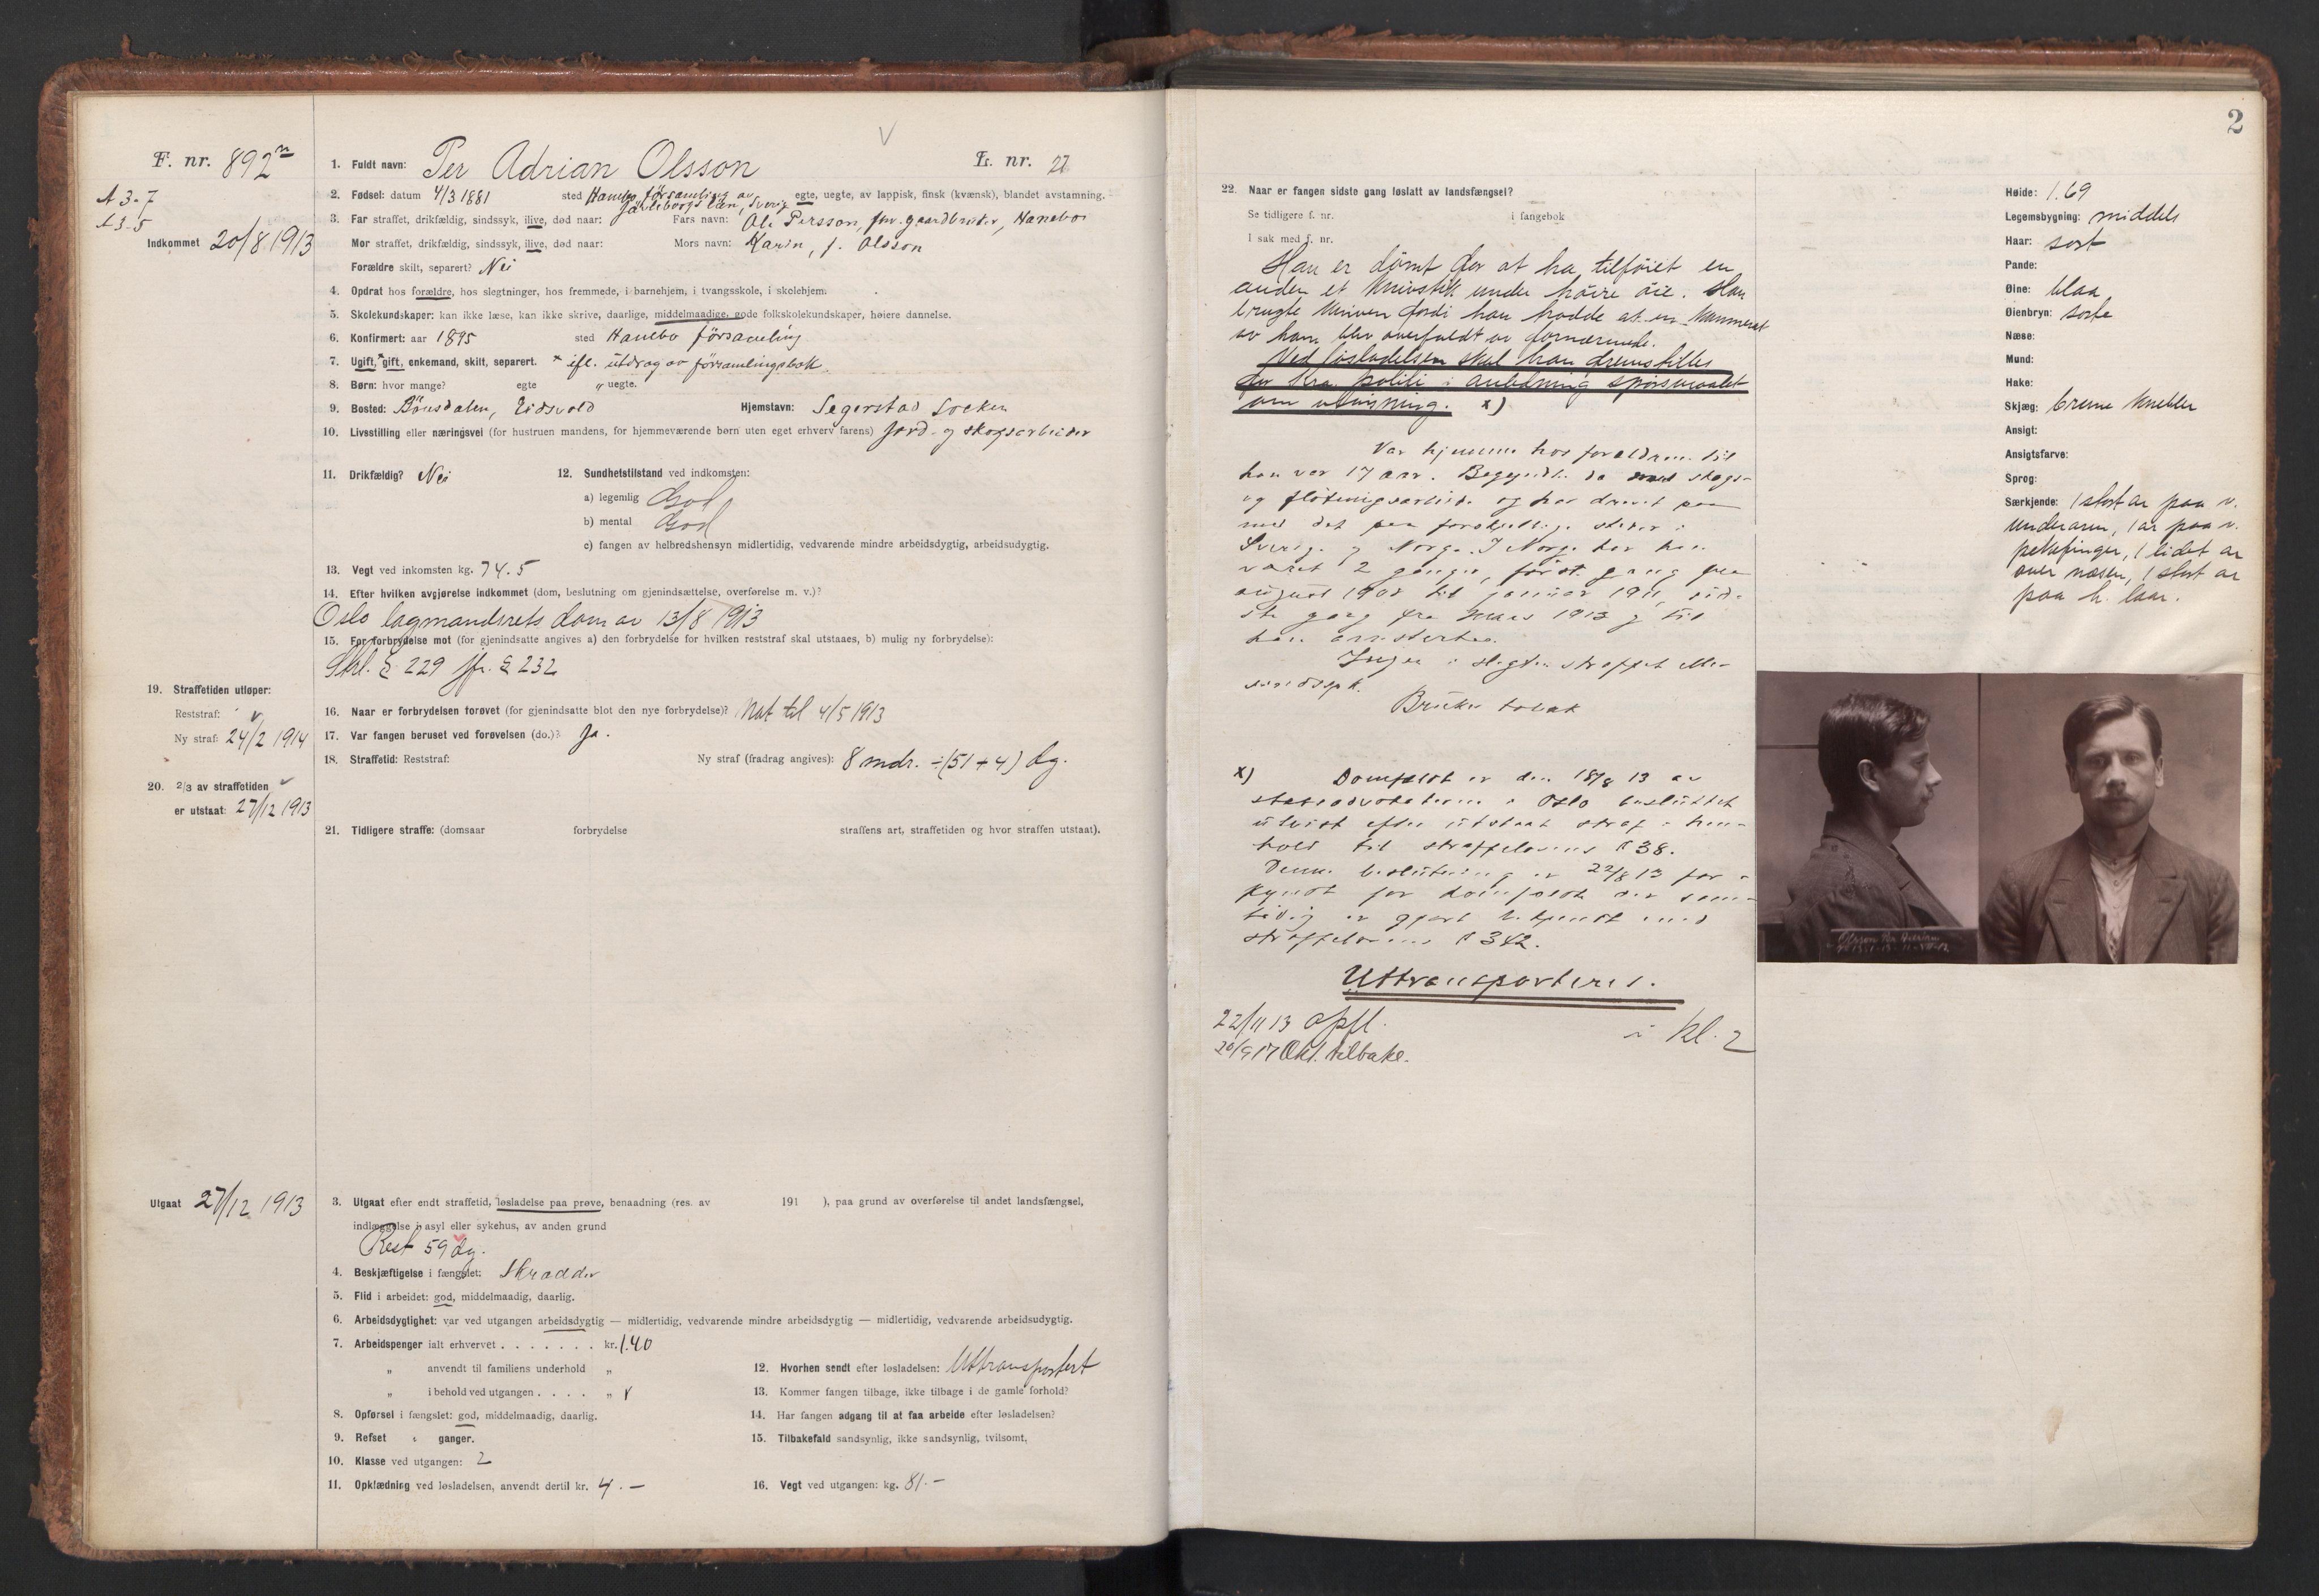 F. nr. 892
A 3-7
A 3-5
Indkommet 20/8 1913
1. Fuldt navn: Per Adrian Olsson
L. nr. 22
2. Fødsel: datum 4/3 1881 sted Hanebo församling av Gäfleborgs län, Sverig egte, uegte, av lappisk, finsk (kvænsk), blandet avstamning.
3. Far straffet, drikfældig, sindssyk, ilive, død naar: Fars navn: Ole Persson, fhv. gaardbruker, Hanebo
Mor straffet, drikfældig, sindssyk, ilive, død naar: Mors navn: Karin, f. Olsson
Forældre skilt, separert? Nei
4. Opdrat hos forældre, hos slegtninger, hos fremmede, i barnehjem, i tvangsskole, i skolehjem.
5. Skolekundskaper: kan ikke læse, kan ikke skrive, daarlige, middelmaadige, gode folkskolekundskaper, høiere dannelse.
6. Konfirmert: aar 1895 sted Hanebo församling
7. Ugift, x gift, enkemand, skilt, separert. x ifl. utdrag av församlingsbok.
8. Børn: hvor mange? egte " uegte.
9. Bosted: Bönsdalen, Eidsvold Hjemstavn: Segerstad Socken
10. Livsstilling eller næringsvei (for hustruen mandens, for hjemmeværende børn uten eget erhverv farens) Jord- og skogsarbeider
11. Drikfældig? Nei
12. Sundhetstilstand ved indkomsten:
a) legemlig God
b) mental God
c) fangen av helbredshensyn midlertidig, vedvarende mindre arbeidsdygtig, arbeidsudygtig.
13. Vegt ved inkomsten kg. 74.5
14. Efter hvilken avgjørelse indkommet (dom, beslutning om gjenindsættelse, overførelse m. v.)?
Oslo lagmandsrets dom av 13/8 1913
15. For forbrydelse mot (for gjenindsatte angives a) den forbrydelse for hvilken reststraf skal utstaaes, b) mulig ny forbrydelse):
Strl. § 229 jfr. § 232
19. Straffetiden utløper:
Reststraf:
Ny straf: 24/2 1914
16. Naar er forbrydelsen forøvet (for gjenindsatte blot den nye forbrydelse)? Nat til 4/5 1913
17. Var fangen beruset ved forøvelsen (do.)? Ja.
18. Straffetid: Reststraf: Ny straf (fradrag angives): 8 mdr. ÷ (51 + 4) dg.
20. 2/3 av straffetiden
er utstaat: 27/12 1913
21. Tidligere straffe: (domsaar forbrydelse straffens art, straffetiden og hvor straffen utstaat).
Utgaat 27/12 1913
3. Utgaat efter endt straffetid, løsladelse paa prøve, benaadning (res. av 191 ), paa grund av overførelse til andet landsfængsel,
indlæggelse i asyl eller sykehus, av anden grund
Rest 59 dg.
4. Beskjæftigelse i fængslet: Skrædder
5. Flid i arbeidet: god, middelmaadig, daarlig.
6. Arbeidsdygtighet: var ved utgangen arbeidsdygtig — midlertidig, vedvarende mindre arbeidsdygtig — midlertidig, vedvarende arbeidsudygtig.
7. Arbeidspenger ialt erhvervet . . . . . . . kr. 1.40
" anvendt til familiens underhold "
" i behold ved utgangen . . . . "
8. Opførsel i fængslet: god, middelmaadig, daarlig.
9. Refset ganger.
10. Klasse ved utgangen: 2
11. Opklædning ved løsladelsen, anvendt dertil kr. 4.-
12. Hvorhen sendt efter løsladelsen: Uttransportert
13. Kommer fangen tilbage, ikke tilbage i de gamle forhold?
14. Har fangen adgang til at faa arbeide efter løsladelsen?
15. Tilbakefald sandsynlig, ikke sandsynlig, tvilsomt,
16. Vegt ved utgangen: kg. 81.-
2
22. Naar er fangen sidste gang løslatt av landsfængsel?
Se tidligere f. nr. i fangebok
I sak med f. nr.
Han er dømt for at ha tilføiet en
anden et knivstik under høire øie. Han
brugte kniven fordi han trodde at en kammerat
av ham blev overfaldt av fornærmede.
Ved løsladelsen skal han fremstilles
for Kra. politi i anledning spørsmaalet
om utvisning. x)
Var hjemme hos forældrene til
han var 17 aar. Begyndte da med skogs-
og flötningsarbeide og har drevet paa
med det paa forskjellige steder i
Sverige og Norge. I Norge har han
været 2 ganger, første gang fra
august 1908 til januar 1911, sid-
ste gang fra mars 1913 og til
han arrestertes.
Ingen i slegten straffet eller
sindssyk.
Bruker tobak
x) Domfældt er den 18/8 13 av
statsadvokaterne i Oslo besluttet
utvist efter utstaat straf i hen-
hold til straffelovens § 38.
Denne beslutning er 22/8 13 for-
kyndt for domfældt der sam-
tidig er gjort bekjendt med
straffelovens § 342.
Uttransporteres.
22/11 13 opfl. i kl. 2
tilbake.
Høide: 1.69
Legemsbygning: middels
Haar: sort
Pande:
Øine: blaa
Øienbryn: sorte
Næse:
Mund:
Hake:
Skjæg: brune knebler
Ansigt:
Ansigtsfarve:
Sprog:
Særkjende: 1 stort ar paa v.
underarm, 1 ar paa v.
pekefinger, 1 lidet ar
over næsen, 1 stort ar
paa h. laar.
Olsson Per Adrian